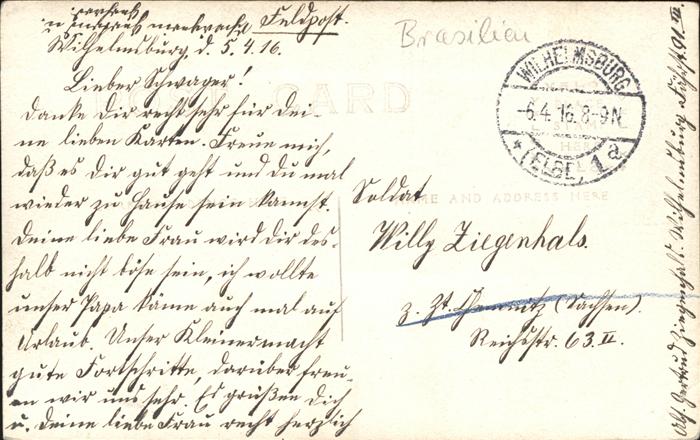 Feldpost.
Wilhelmsburg, d. 5.4.16.
Lieber Schwager!
Danke Dir recht sehr für Dei-
ne lieben Karten. Freue mich,
daß es Dir gut geht und Du mal
wieder zu Hause sein kannst.
Deine liebe Frau wird Dir des-
halb nicht böse sein, ich wollte
unser Papa käme auch mal auf
Urlaub. Unser Kleiner macht
gute Fortschritte, darüber freu-
en wir uns sehr. Es grüßen Dich
u. Deine liebe Frau recht herzlich
Brasilien
WILHELMSBURG
-6.4.16.8-9N.
* (ELBE) 1a
CARD
NAME AND ADDRESS HERE
Soldat
Willy Ziegenhals.
z. Zt. Chemnitz (Sachsen).
Reichsstr. 63 II.
Abs. Gertrud Ziegenhals. Wilhelmsburg 91 III.